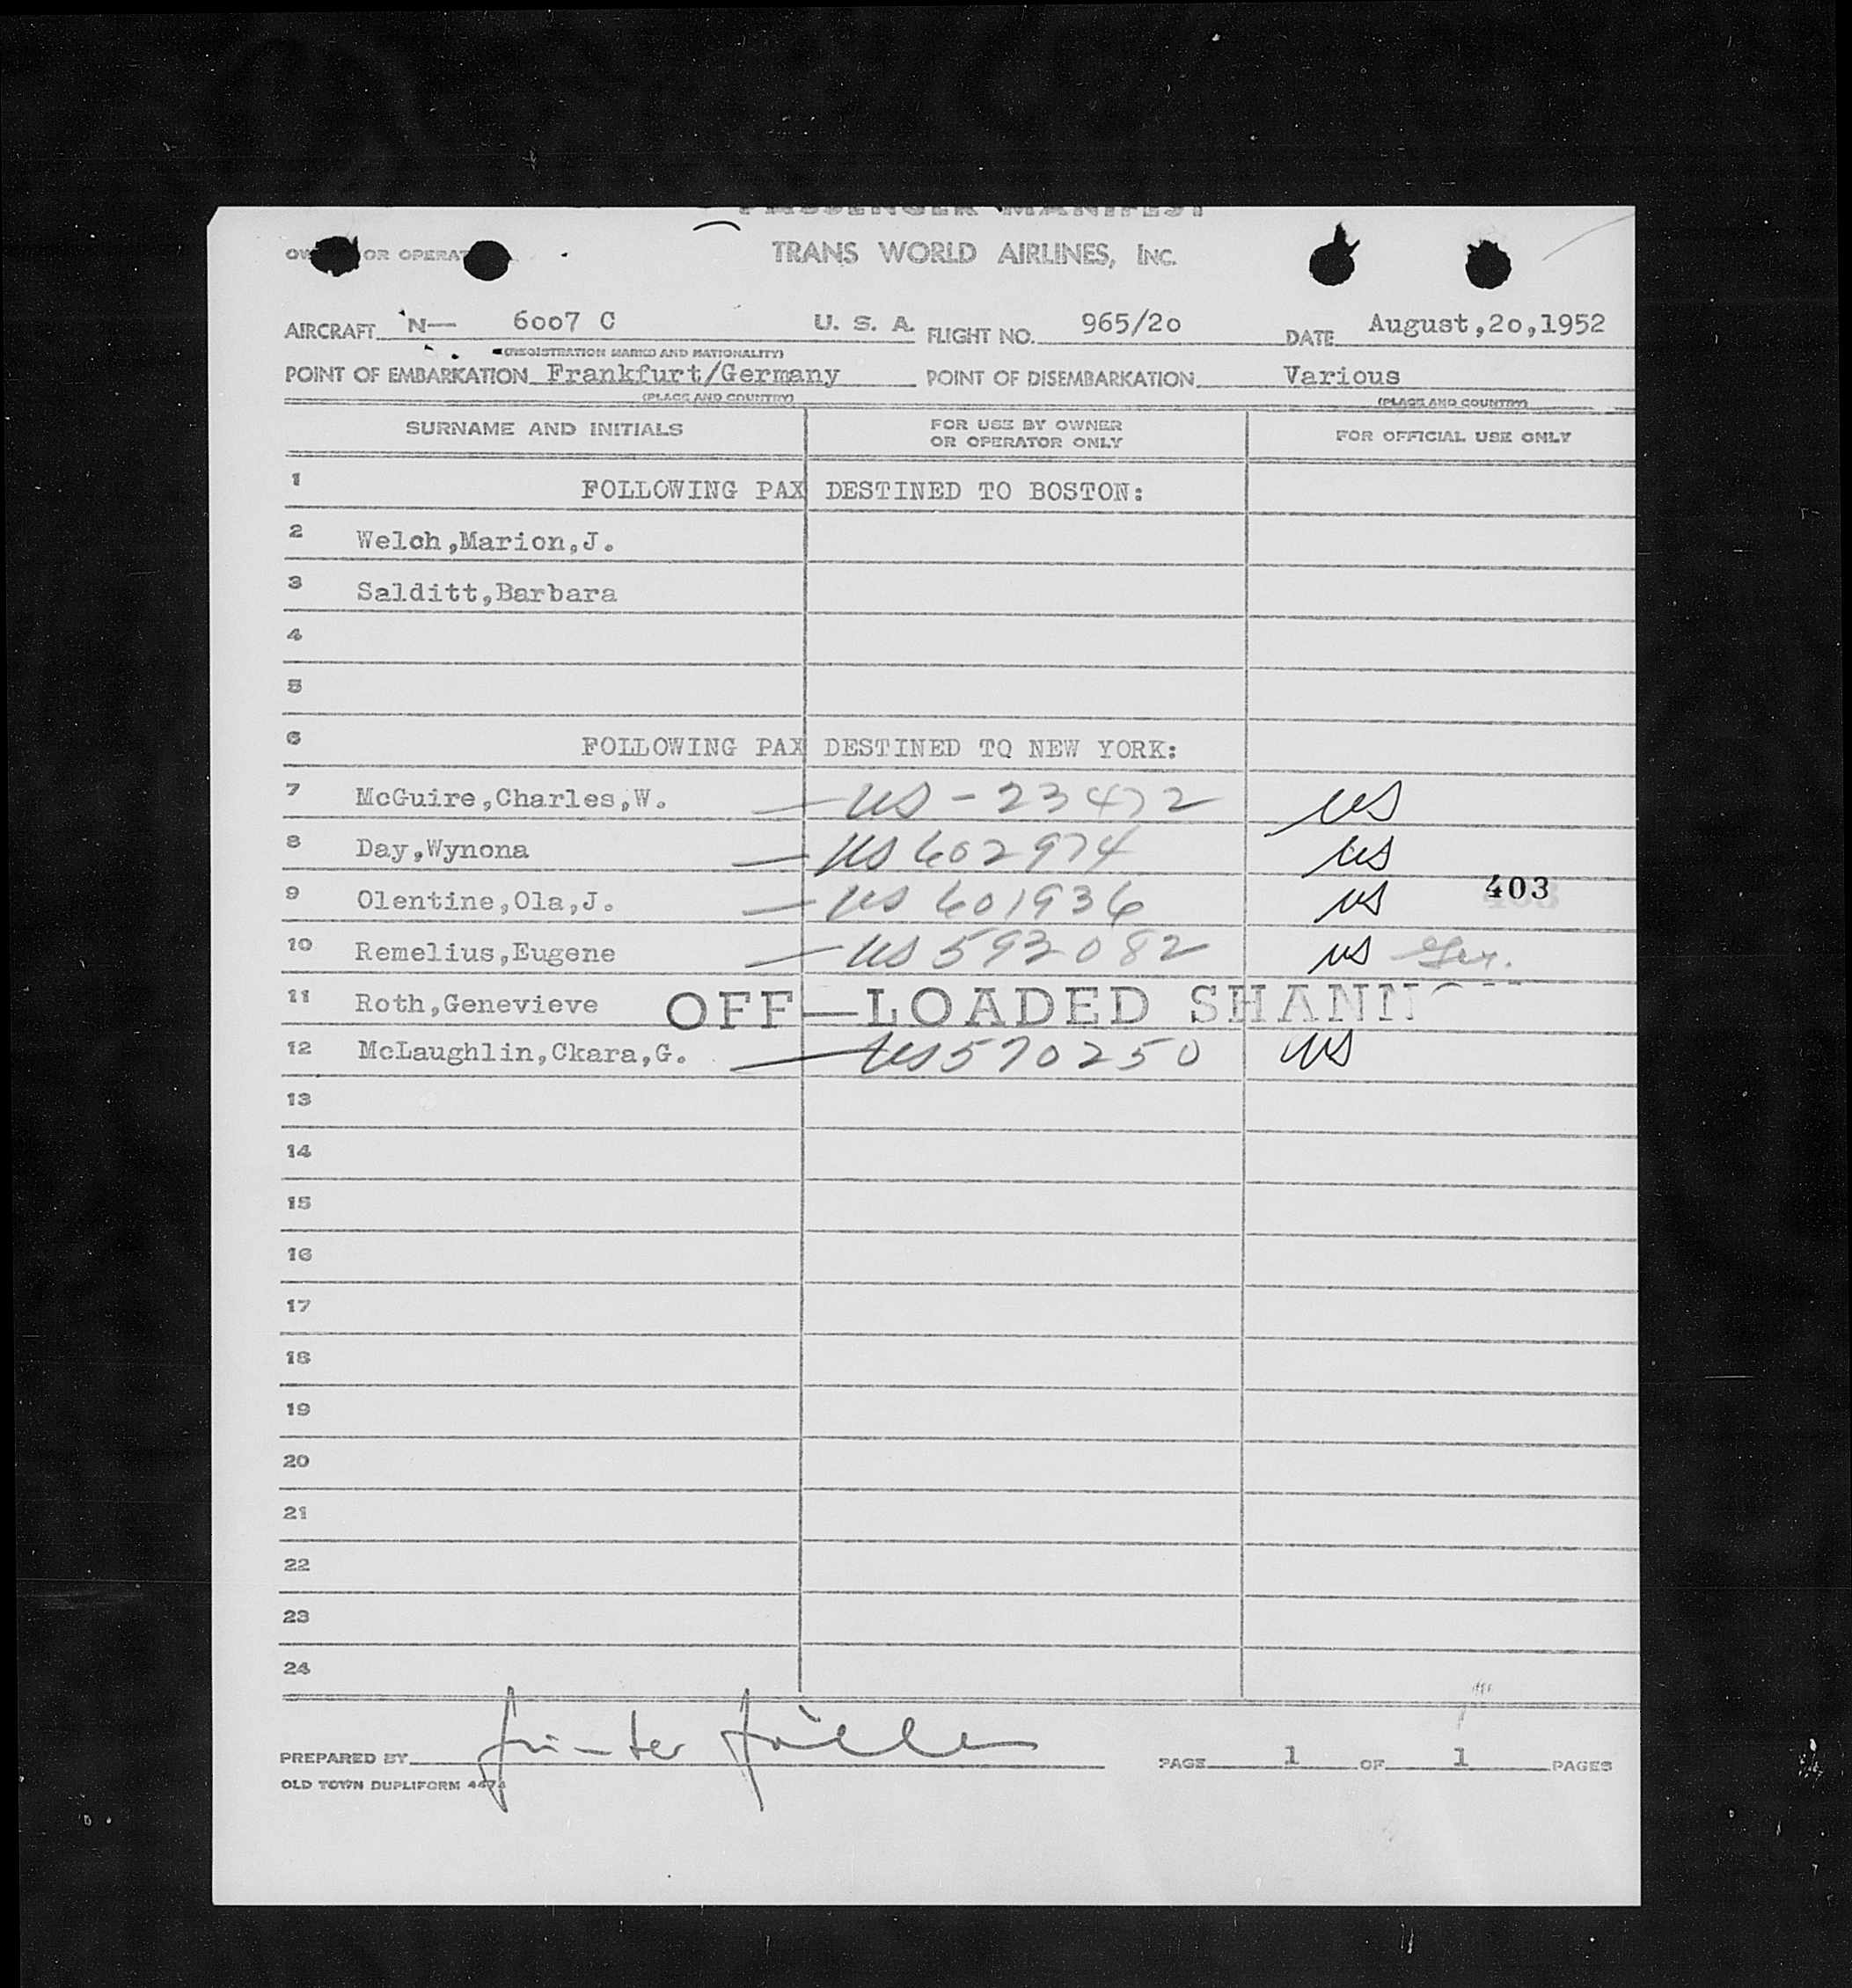 PASSENGER MANIFEST
OR TRANS WORLD AIRLINES, INC.
AIRCRAFT N— 6007 C U. S. A. FLIGHT NO. 965/20 DATE August,20,1952
(REGISTRATION MARKS AND NATIONALITY)
POINT OF EMBARKATION Frankfurt/Germany POINT OF DISEMBARKATION Various
(PLACE AND COUNTRY) (PLACE AND COUNTRY)
SURNAME AND INITIALS FOR USE BY OWNER OR OPERATOR ONLY FOR OFFICIAL USE ONLY
1 FOLLOWING PAX DESTINED TO BOSTON:
2 Welch,Marion,J.
3 Salditt,Barbara
4
5
6 FOLLOWING PAX DESTINED TO NEW YORK:
7 McGuire,Charles,W. — US - 23472 US
8 Day,Wynona — US 602974 US
403
9 Olentine,Ola,J. — US 601936 US
10 Remelius,Eugene — US 593082 US
11 Roth,Genevieve OFF—LOADED
12 McLaughlin,Ckara,G. — US 570250 US
13
14
15
16
17
18
19
20
21
22
23
24
PREPARED BY PAGE 1 OF 1 PAGES
OLD TOWN DUPLIFORM